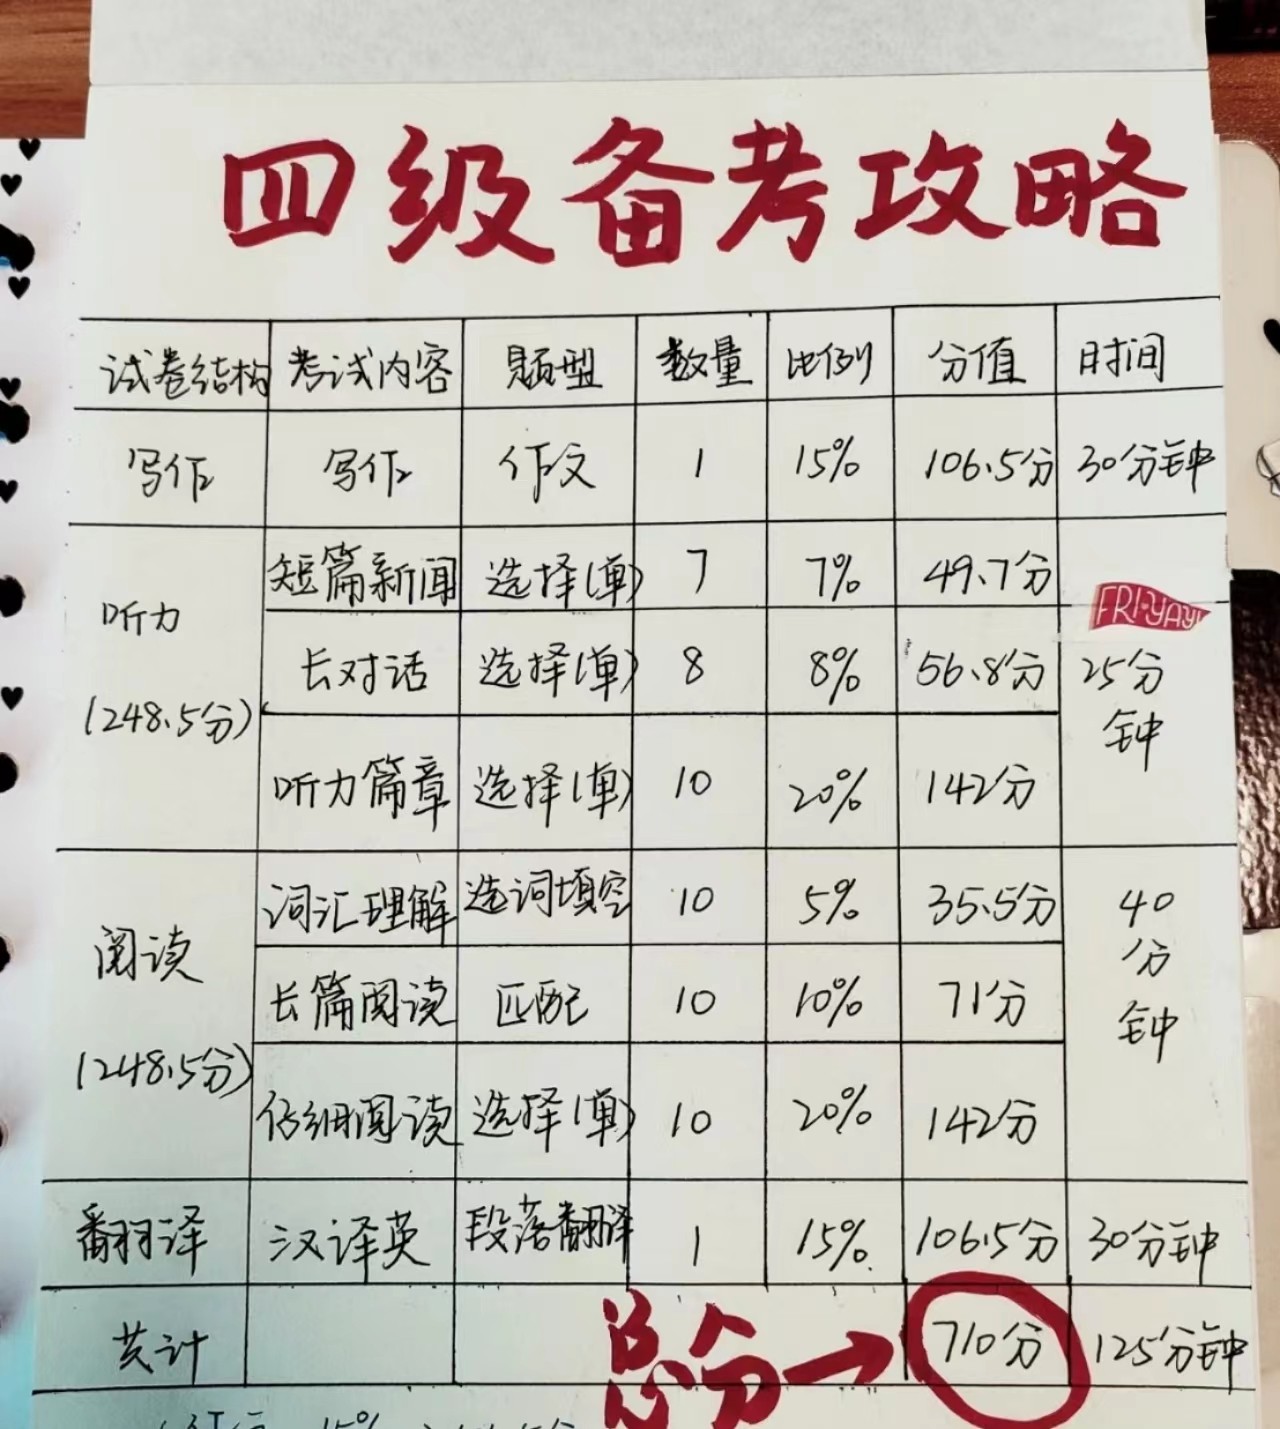 四级备考攻略
试卷结构 考试内容 题型 数量 比例 分值 时间
写作 写作 作文 1 15% 106.5分 30分钟
听力 (248.5分) 短篇新闻 选择(单) 7 7% 49.7分
FRI-YAY!
长对话 选择(单) 8 8% 56.8分 25分钟
听力篇章 选择(单) 10 20% 142分
阅读 (248.5分) 词汇理解 选词填空 10 5% 35.5分 40分钟
长篇阅读 匹配 10 10% 71分
仔细阅读 选择(单) 10 20% 142分
翻译 汉译英 段落翻译 1 15% 106.5分 30分钟
共计 总分→ 710分 125分钟
15%